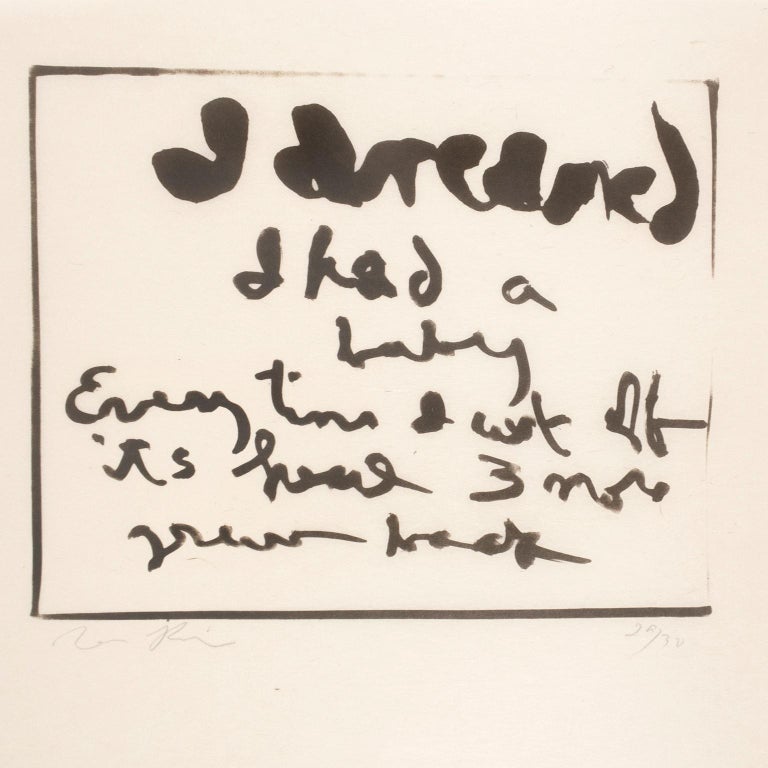 I dreamed
I had a
baby
Every time I cut off
its head 3 more
grew back